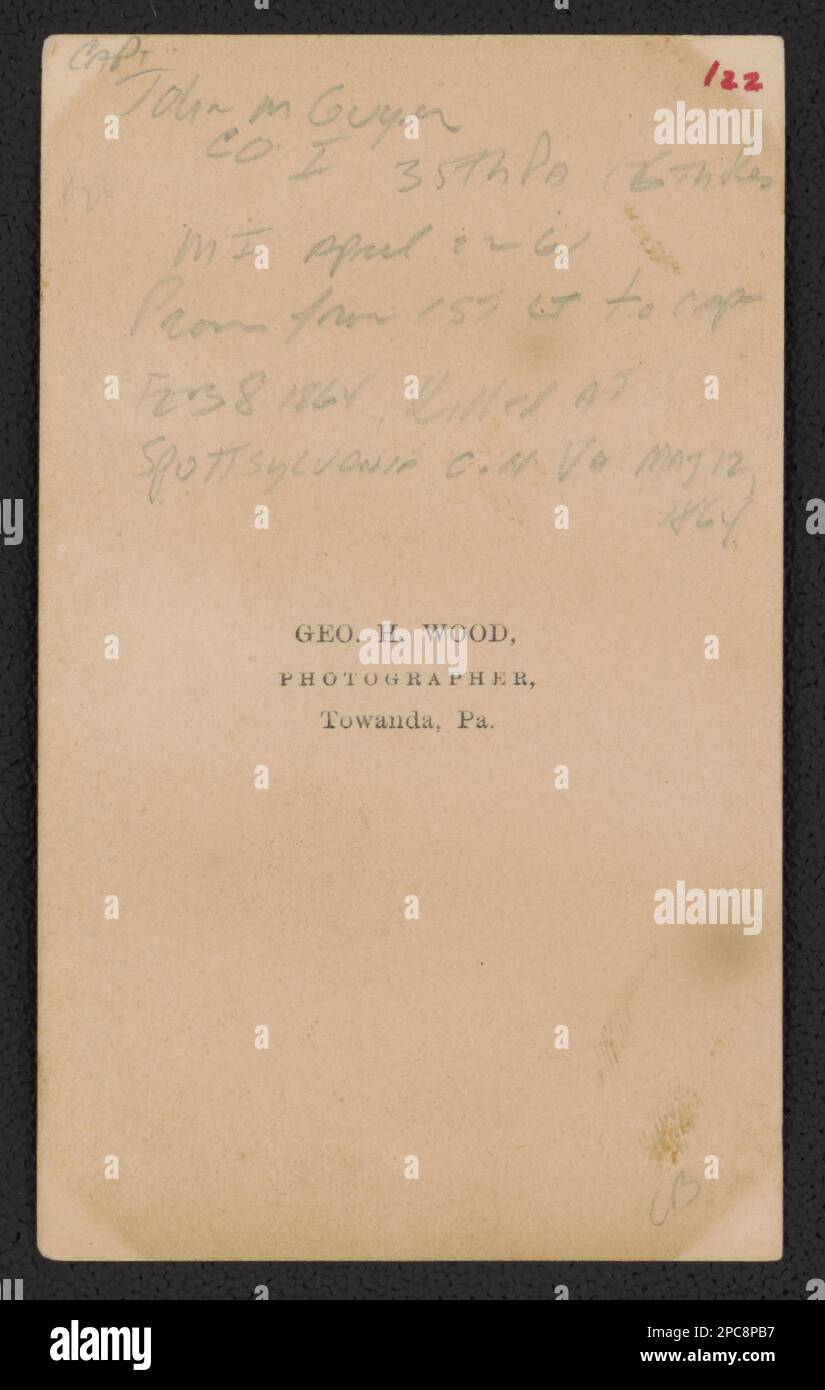 CAPT
122
John M Guyer
CO I 35Th PA
M I April 22 61
Prom from 1st LT to CAPT
Feb 8 1864 Killed AT
Spottsylvania C.H. Va May 12,
1864
GEO. H. WOOD,
PHOTOGRAPHER,
Towanda, Pa.
alamy
Image ID: 2PC8PB7
www.alamy.com